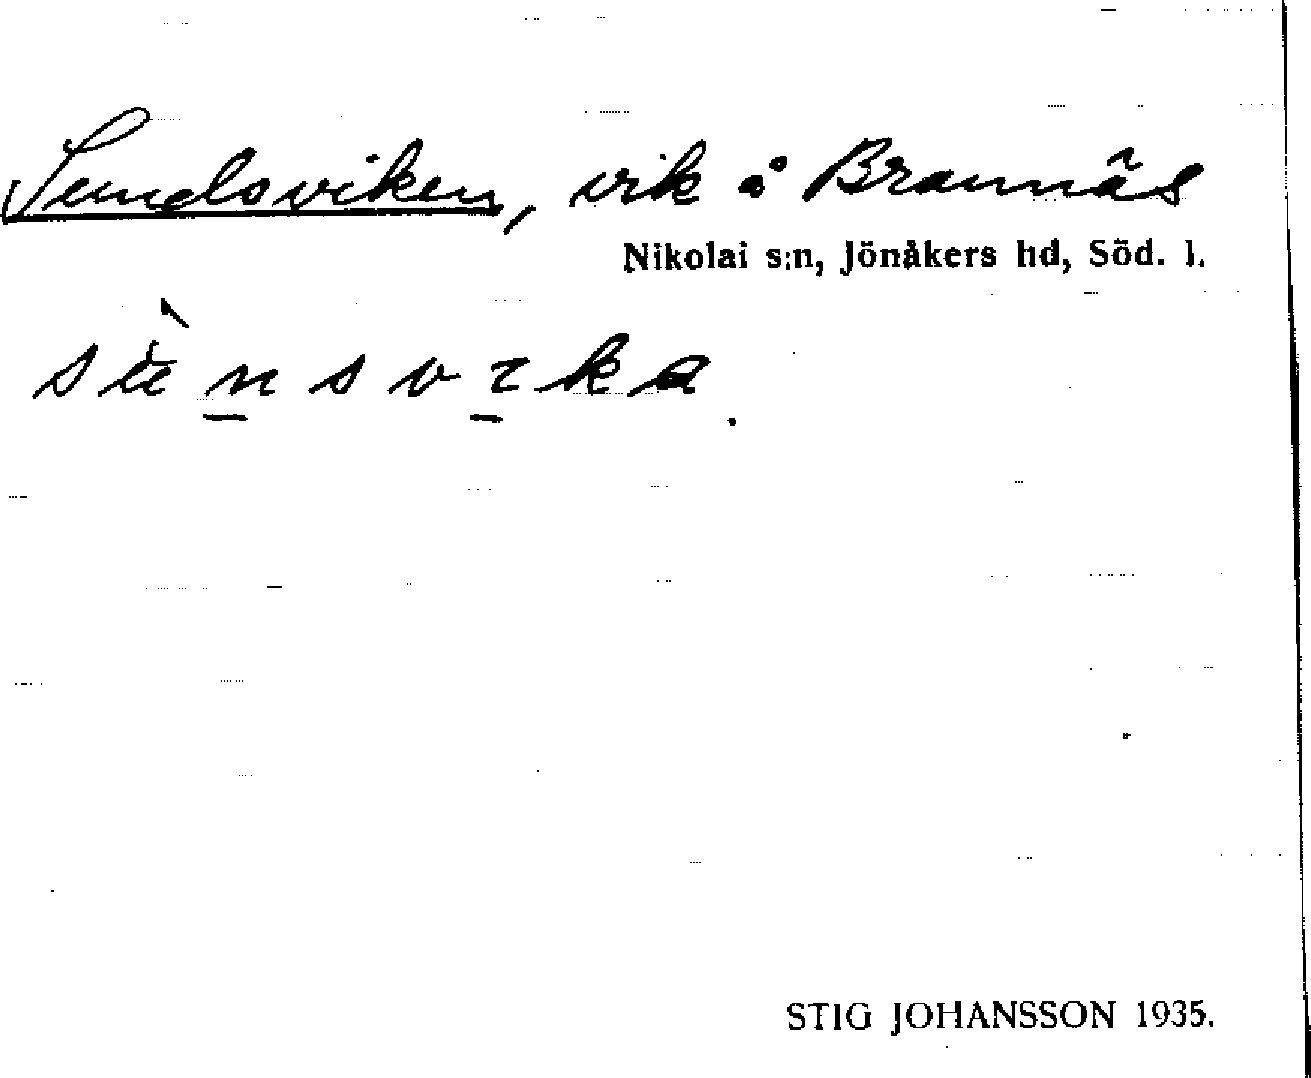 Sundsviken, vik å Brannäs
Nikolai s:n, Jönåkers hd, Söd. l.
STIG JOHANSSON 1935.